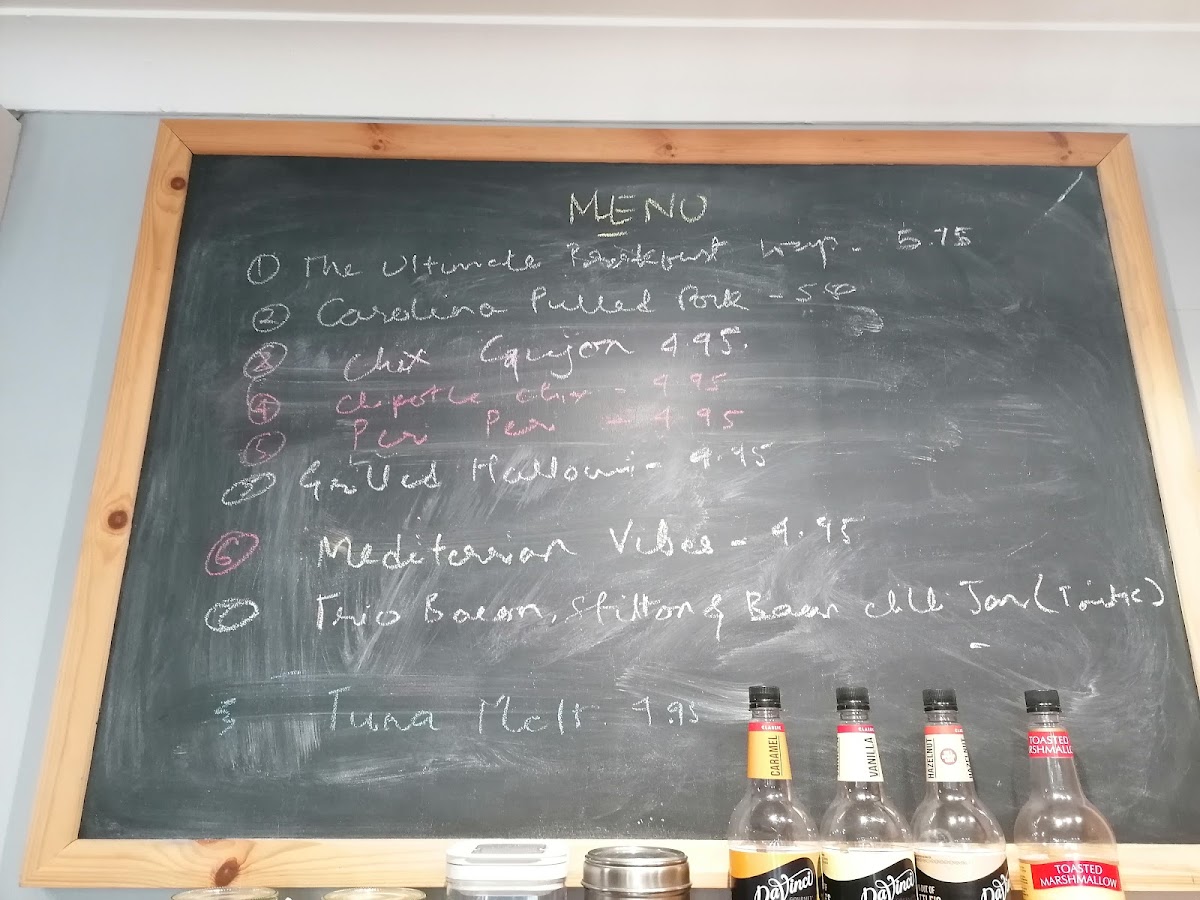 MENU
① The Ultimate Breakfast Wrap - 5.75
② Carolina Pulled Pork -
③ Chix Goujon 4.95.
④ chipotle chix - 4.95
⑤ Peri Peri - 4.95
Grilled Halloumi - 4.95
⑥ Mediterrian Vibes - 4.95
Trio Bacon, Stilton & Bacon chilli Jam (
Tuna Melt. 4.95
CLASSIC
CARAMEL
CLASSIC
VANILLA
HAZELNUT
HAZELNUT
TOASTED
MARSHMALLOW
DaVinci
GOURMET
DaVinci
DaVinci
TOASTED
MARSHMALLOW